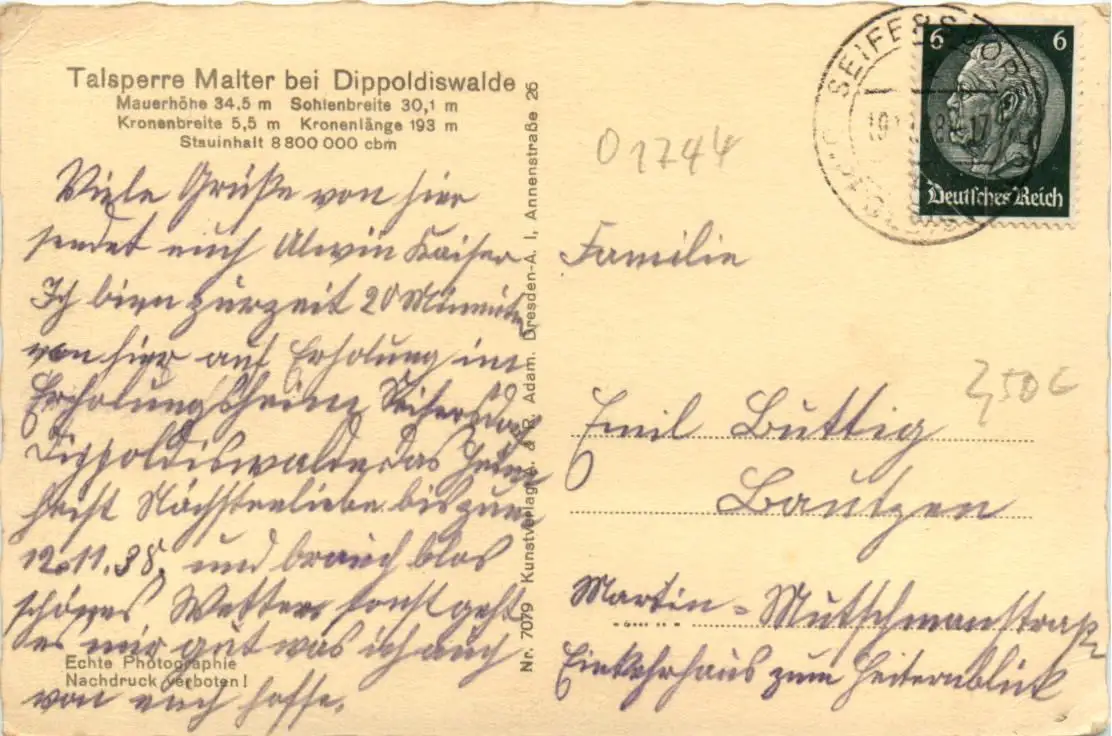 Talsperre Malter bei Dippoldiswalde
Mauerhöhe 34,5 m Sohlenbreite 30,1 m
Kronenbreite 5,5 m Kronenlänge 193 m
Stauinhalt 8 800 000 cbm
Viele Grüße von hier
sendet euch Alwin Kaiser
Ich bin zurzeit 20 Minuten
von hier auf Erholung im
Erholungsheim Seifersdorf
Dippoldiswalde das Heim
heist Nächstenliebe bis zum
12.11.38. und brauch blos
schönes Wetter sonst geht
es mir gut was ich auch
von euch hoffe.
Echte Photographie
Nachdruck verboten!
Nr. 7079 Kunstverlag R. Adam, Dresden-A. I, Annenstraße 26
01744
SEIFERSDORF
6 6
Deutsches Reich
Familie
3,50 €
Emil Büttig
Bautzen
Martin-Mutschmanstraß
Einkehrhaus zum Heiternblick